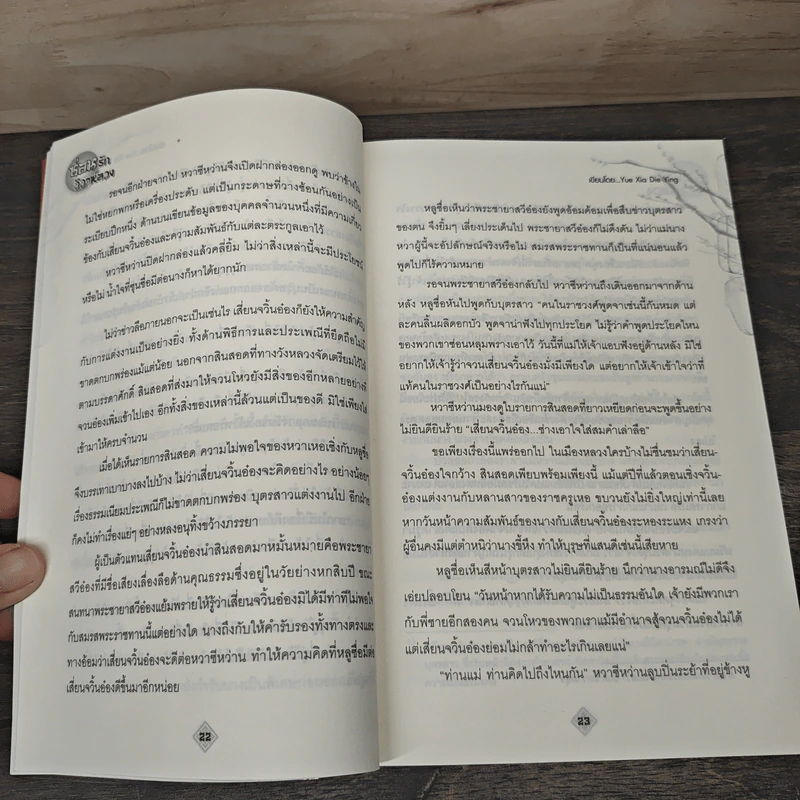 ซ่อนรัก
วังหลวง
รอจนอีกฝ่ายจากไป หวาซีหว่านจึงเปิดฝากล่องออกดู พบว่าข้างใน
ไม่ใช่หยกพกหรือเครื่องประดับ แต่เป็นกระดาษที่วางซ้อนกันอย่างเป็น
ระเบียบปึกหนึ่ง ด้านบนเขียนข้อมูลของบุคคลจำนวนหนึ่งที่มีความเกี่ยว
ข้องกับเสี่ยนจวิ้นอ๋องและความสัมพันธ์กับแต่ละตระกูลเอาไว้
หวาซีหว่านปิดฝากล่องแล้วคลี่ยิ้ม ไม่ว่าสิ่งเหล่านี้จะมีประโยชน์
หรือไม่ น้ำใจที่ซุนซื่อมีต่อนางก็หาได้ยากนัก
ไม่ว่าข่าวลือภายนอกจะเป็นเช่นไร เสี่ยนจวิ้นอ๋องก็ยังให้ความสำคัญ
กับการแต่งงานเป็นอย่างยิ่ง ทั้งด้านพิธีการและประเพณีที่ยึดถือไม่มี
ขาดตกบกพร่องแม้แต่น้อย นอกจากสินสอดที่ทางวังหลวงจัดเตรียมไว้ให้
ตามบรรดาศักดิ์ สินสอดที่ส่งมาให้จวนโหวยังมีสิ่งของอีกหลายอย่างที่
จวนอ๋องเพิ่มเข้าไปเอง อีกทั้งสิ่งของเหล่านี้ล้วนแต่เป็นของดี มิใช่เพียงใส่
เข้ามาให้ครบจำนวน
เมื่อได้เห็นรายการสินสอด ความไม่พอใจของหวาเหอเซิ่งกับหลูซื่อ
จึงบรรเทาเบาบางลงไปบ้าง ไม่ว่าเสี่ยนจวิ้นอ๋องจะคิดอย่างไร อย่างน้อยๆ
เรื่องธรรมเนียมประเพณีก็ไม่ขาดตกบกพร่อง บุตรสาวแต่งงานไป อีกฝ่าย
ก็คงไม่ทำเรื่องแย่ๆ อย่างหลงอนุทิ้งขว้างภรรยา
ผู้เป็นตัวแทนเสี่ยนจวิ้นอ๋องนำสินสอดมาหมั้นหมายคือพระชายา
สวีอ๋องที่มีชื่อเสียงเลื่องลือด้านคุณธรรมซึ่งอยู่ในวัยย่างหกสิบปี ขณะ
สนทนาพระชายาสวีอ๋องแย้มพรายให้รู้ว่าเสี่ยนจวิ้นอ๋องมิได้มีท่าทีไม่พอใจ
กับสมรสพระราชทานนี้แต่อย่างใด นางถึงกับให้คำรับรองทั้งทางตรงและ
ทางอ้อมว่าเสี่ยนจวิ้นอ๋องจะดีต่อหวาซีหว่าน ทำให้ความคิดที่หลูซื่อมีต่อ
เสี่ยนจวิ้นอ๋องดีขึ้นมาอีกหน่อย
22
เขียนโดย...Yue Xia Die Ying
หลูซื่อเห็นว่าพระชายาสวีอ๋องยังพูดอ้อมค้อมเพื่อสืบข่าวบุตรสาว
ของตน จึงยิ้มๆ เลี่ยงประเด็นไป พระชายาสวีอ๋องก็ไม่ดึงดัน ไม่ว่าแม่นาง
หวาผู้นี้จะอัปลักษณ์จริงหรือไม่ สมรสพระราชทานก็เป็นที่แน่นอนแล้ว
พูดไปก็ไร้ความหมาย
รอจนพระชายาสวีอ๋องกลับไป หวาซีหว่านถึงเดินออกมาจากด้าน
หลัง หลูซื่อหันไปพูดกับบุตรสาว "คนในราชวงศ์พูดจาเช่นนี้กันหมด แต่
ละคนลิ้นผลิดอกบัว พูดจาน่าฟังไปทุกประโยค ไม่รู้ว่าคำพูดประโยคไหน
ของพวกเขาซ่อนหลุมพรางเอาไว้ วันนี้ที่แม่ให้เจ้าแอบฟังอยู่ด้านหลัง มิใช่
อยากให้เจ้ารู้ว่าจวนเสี่ยนจวิ้นอ๋องมั่งมีเพียงใด แต่อยากให้เจ้าเข้าใจว่าที่
แท้คนในราชวงศ์เป็นอย่างไรกันแน่"
หวาซีหว่านมองดูใบรายการสินสอดที่ยาวเหยียดก่อนจะพูดขึ้นอย่าง
ไม่ยินดียินร้าย "เสี่ยนจวิ้นอ๋อง...ช่างเอาใจใส่สมคำเล่าลือ"
ขอเพียงเรื่องนี้แพร่ออกไป ในเมืองหลวงใครบ้างไม่ชื่นชมว่าเสี่ยน-
จวิ้นอ๋องใจกว้าง สินสอดเพียบพร้อมเพียงนี้ แม้แต่ปีที่แล้วตอนเซิ่งจวิ้น-
อ๋องแต่งงานกับหลานสาวของราชครูเหอ ขบวนยังไม่ยิ่งใหญ่เท่านี้เลย
หากวันหน้าความสัมพันธ์ของนางกับเสี่ยนจวิ้นอ๋องระหองระแหง เกรงว่า
ผู้อื่นคงมีแต่ตำหนิว่านางขี้หึง ทำให้บุรุษที่แสนดีเช่นนี้เสียหาย
หลูซื่อเห็นสีหน้าบุตรสาวไม่ยินดียินร้าย นึกว่านางอารมณ์ไม่ดีจึง
เอ่ยปลอบโยน "วันหน้าหากได้รับความไม่เป็นธรรมอันใด เจ้ายังมีพวกเรา
กับพี่ชายอีกสองคน จวนโหวของพวกเราแม้มีอำนาจสู้จวนจวิ้นอ๋องไม่ได้
แต่เสี่ยนจวิ้นอ๋องย่อมไม่กล้าทำอะไรเกินเลยแน่"
"ท่านแม่ ท่านคิดไปถึงไหนกัน" หวาซีหว่านลูบปิ่นระย้าที่อยู่ข้างหู
23